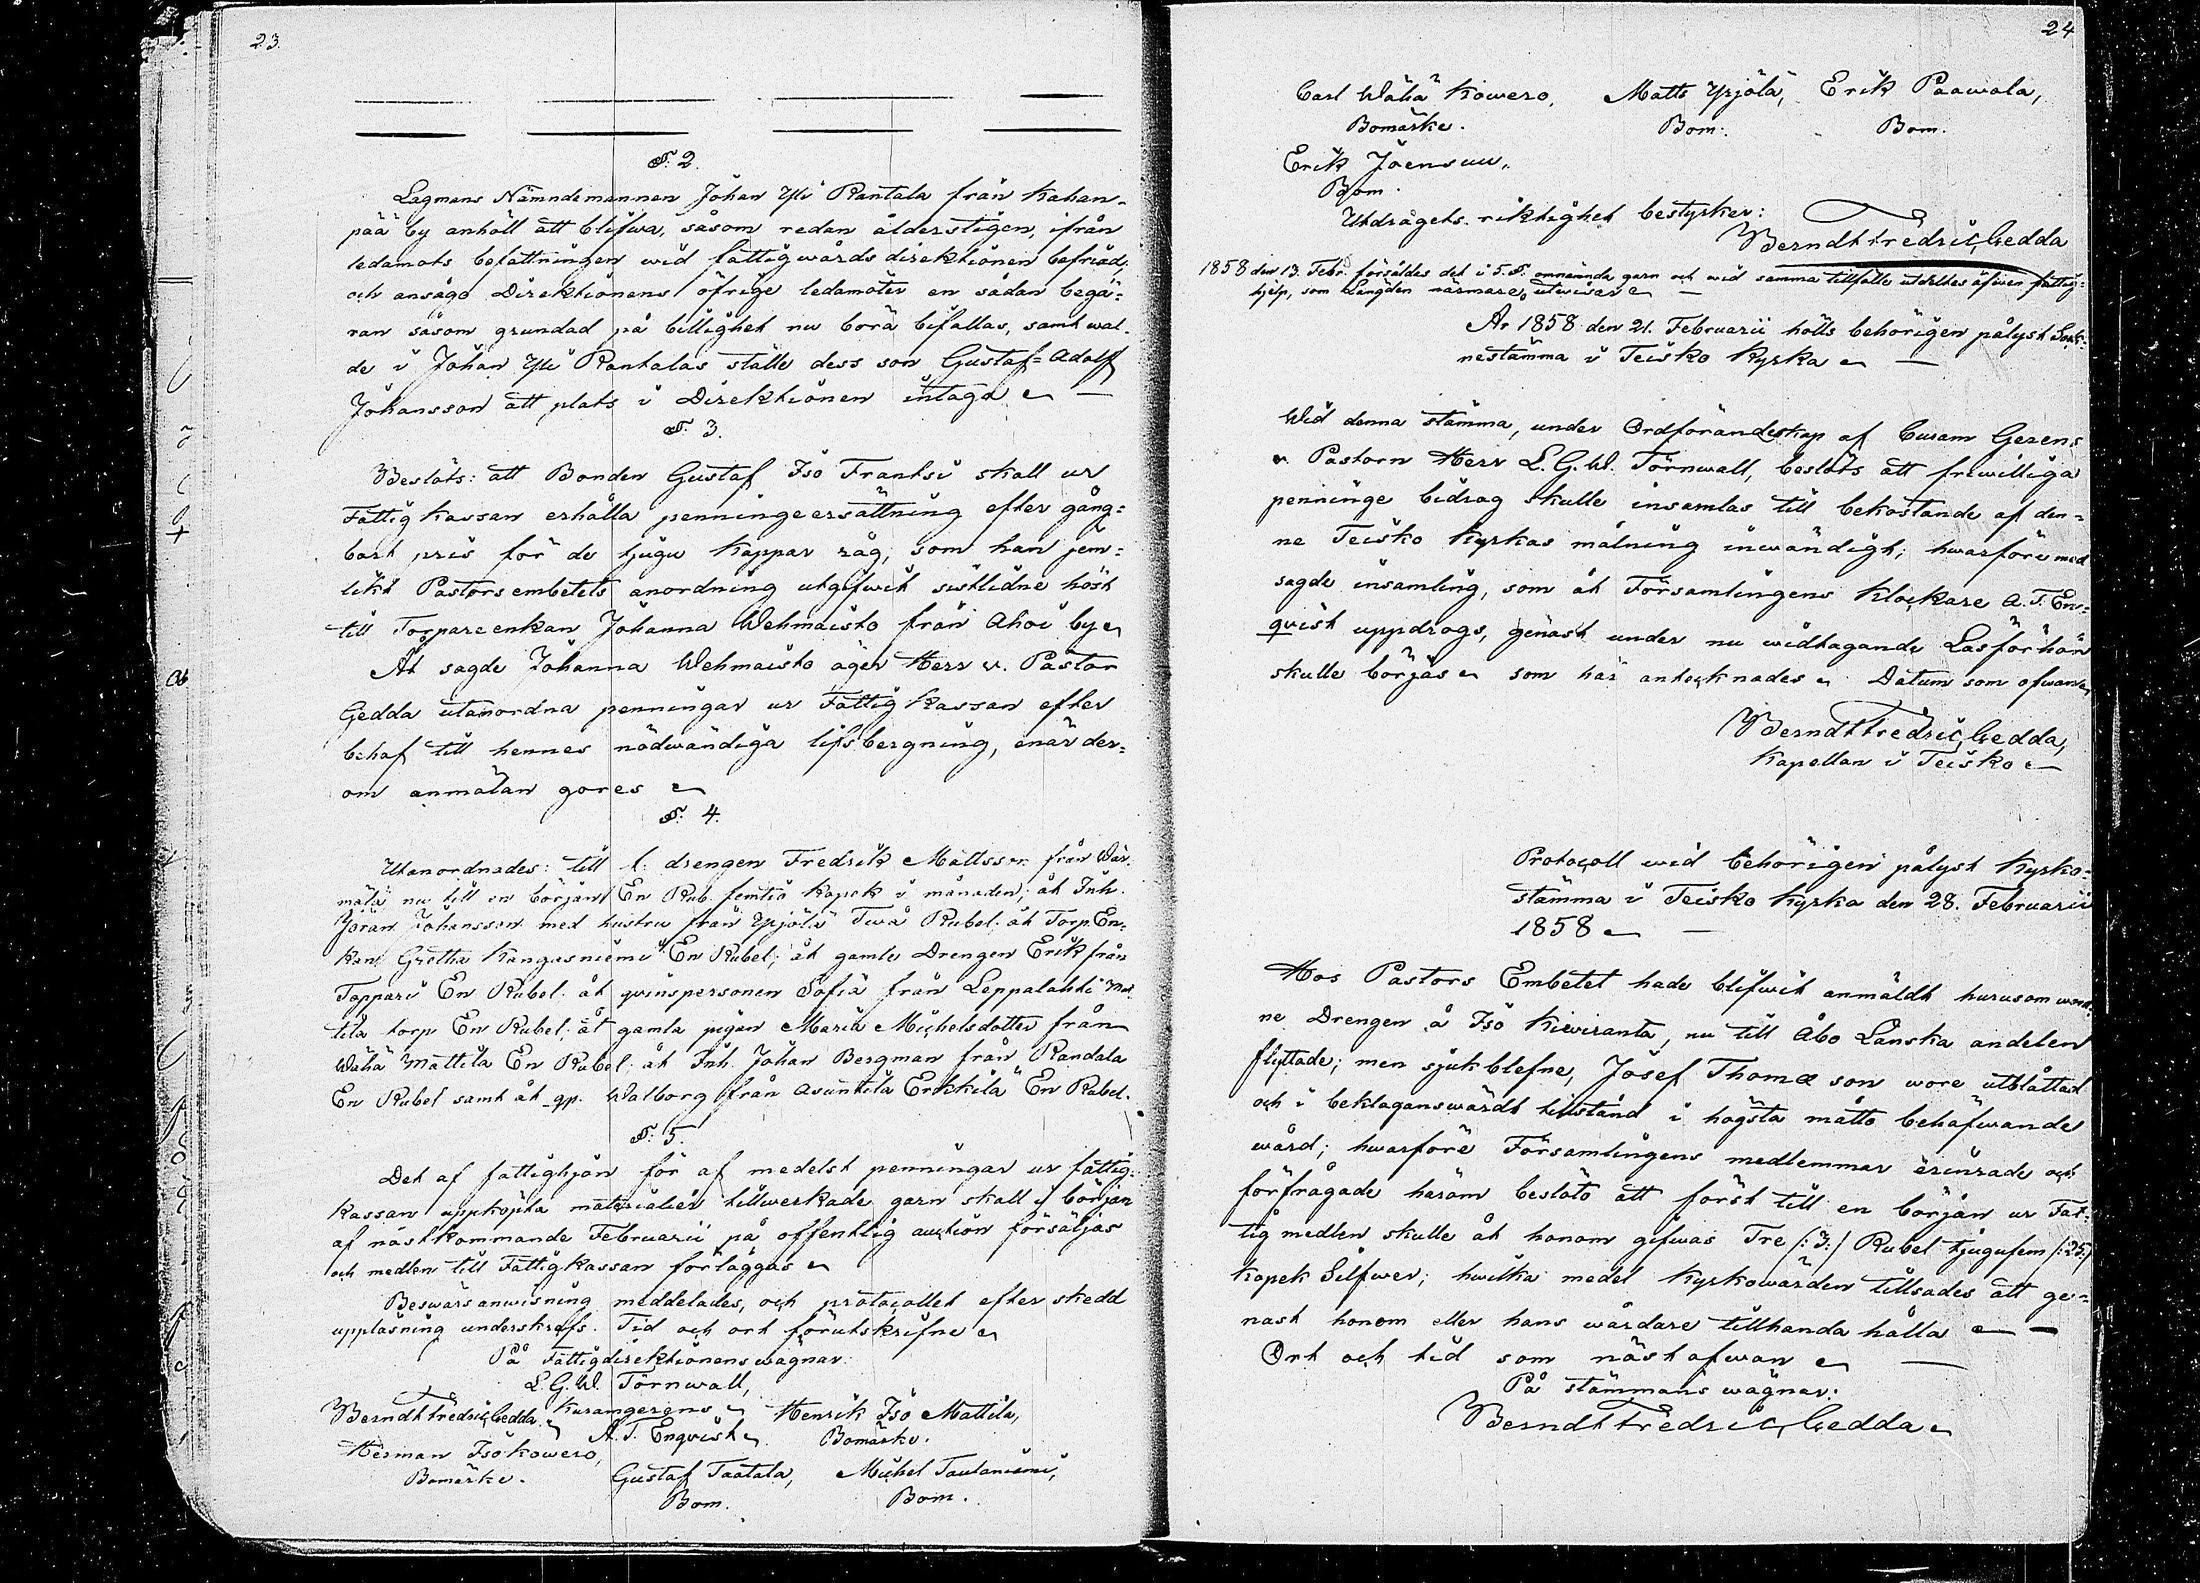 23.
§. 2.
Lagmans Nämndemannen Johan Yli Rantala från Kahan-
pää by anhöll att blifwa, såsom redan ålderstigen, ifrån
ledamots befattningen wid fattigwårds direktionen befriad,
och ansågo Direktionens öfrige ledamöter en sådan begä-
ran såsom grundad på billighet nu böra bifallas, samt wal-
de i Johan Yli Rantalas ställe dess son Gustaf-Adolf
Johansson att plats i Direktionen intaga
§. 3.
Beslöts: att Bonden Gustaf Iso Frantsi skall ur
Fattigkassan erhålla penningeersättning efter gång-
bart pris för de tjugu kappar råg, som han jem-
likt Pastorsembetets anordning utgifwit sistlidne höst
till Torpareenkan Johanna Wehmaisto från Ahoi by
Åt sagde Johanna Wehmaisto äger Herr v. Pastor
Gedda utanordna penningar ur Fattigkassan efter
behof till hennes nödwändiga lifsbergning, enär der-
om anmälan göres
§. 4.
Utanordnades: till f. drengen Fredrik Mattsson från Wär-
mälä nu till en början En Rub. femtio kopek i månaden; åt Inh.
Jöran Johansson med hustru från Ypjölä Twå Rubel; åt Torp. En-
kan Gretha Kangasniemi En Rubel; åt gamle Drengen Erik från
Toppari En Rubel; åt qvinspersonen Sofia från Leppalahti Mat-
tila torp En Rubel; åt gamla pigan Maria Michelsdotter från
Wähä Mattila En Rubel; åt Inh. Johan Bergman från Randala
En Rubel samt åt qp. Walborg från Asuntila Erkkilä En Rubel.
§. 5.
Det af fattighjon för af medelst penningar ur fattig-
kassan uppköpta materialier tillwerkade garn skall i början
af nästkommande Februarii på offentlig auction försäljas
och medlen till Fattigkassan förläggas
Beswärsanwisning meddelades, och protocollet efter skedd
uppläsning underskrefs. Tid och ort förutskrifne
På Fattigdirektionens wägnar:
L. G. W. Törnwall,
Kuramgerens
Berndt Fredric Gedda
A. F. Enqvist
Henrik Iso Mattila,
Bomärke.
Herman Iso Kowero,
Bomärke.
Gustaf Taatala,
Bom.
Michel Taulaniemi,
Bom.
24
Carl Wähä Kowero, Matts Ypjölä, Erik Paawola,
Bomärke. Bom: Bom.
Erik Joensuu,
Bom.
Utdragets riktighet bestyrker:
Berndt Fredric Gedda
1858 den 13. Febr. försåldes det i 5. §. omnämnda garn och wid samma tillfälle utdeltes äfwen fattig-
hjelp, som Längden närmare utwisar
År 1858 den 21. Februarii hölls behörigen pålyst Sock-
nestämma i Teisko Kyrka
Wid denna stämma, under Ordförandeskap af Curam Gerens
v. Pastorn Herr L. G. W. Törnwall, beslöts att friwilliga
penninge bidrag skulle insamlas till bekostande af den-
ne Teisko Kyrkas målning inwändigt; hwarföre med
sagde insamling, som åt Församlingens Klockare A. F. En-
qvist uppdrogs, genast under nu widtagande Läsförhör
skulle börjas som här antecknades Datum som ofwan
Berndt Fredric Gedda,
Kapellan i Teisko
Protocoll wid behörigen pålyst Kyrko-
stämma i Teisko Kyrka den 28. Februarii
1858
Hos Pastors Embetet hade blifwit anmäldt hurusom
ne Drengen å Iso Kiwiranta, nu till Åbo Länska andelen
flyttade; men sjukblefne, Josef Thomæson wore utblottad
och i beklagansvärdt tillstånd i högsta måtto behöfwande
wård; hwarföre Församlingens medlemmar erinrade och
förfrågade härom beslöto att först till en början ur Fat-
tig medlen skulle åt honom gifwas Tre /:3:/ Rubel tjugufem /:25:/
kopek Silfwer; hwilka medel Kyrkowärden tillsades att ge-
nast honom eller hans wårdare tillhanda hålla
Ort och tid som näst ofwan
På stämmans wägnar:
Berndt Fredric Gedda